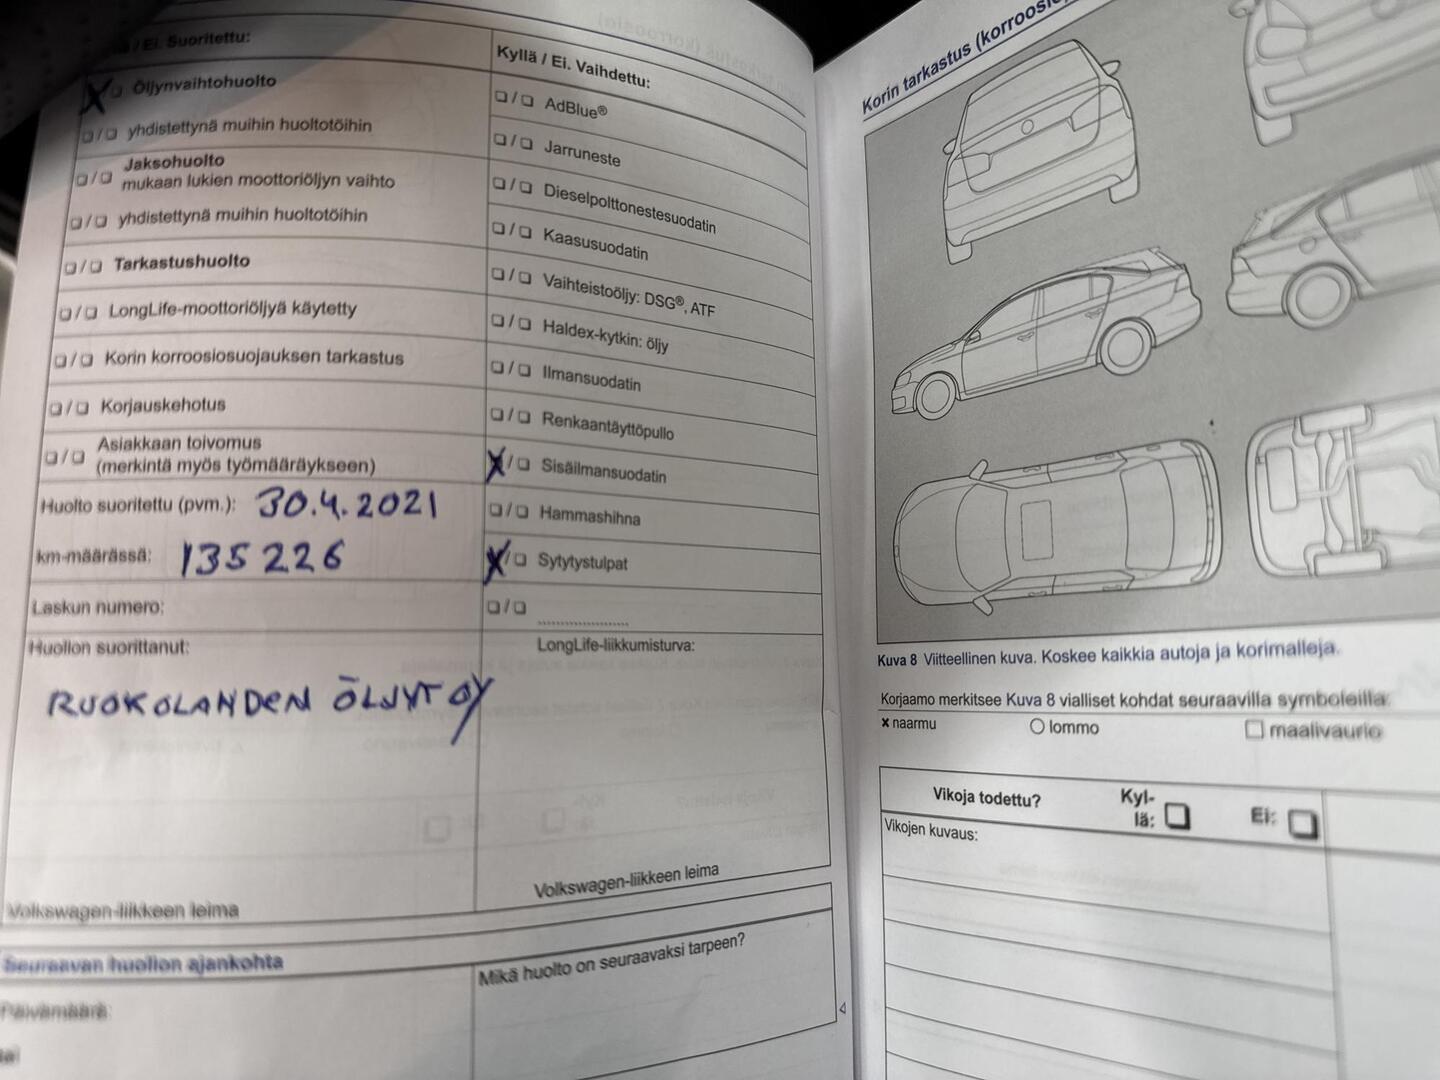 / Ei. Suoritettu:
Öljynvaihtohuolto
yhdistettynä muihin huoltotöihin
Jaksohuolto
mukaan lukien moottoriöljyn vaihto
yhdistettynä muihin huoltotöihin
Tarkastushuolto
LongLife-moottoriöljyä käytetty
Korin korroosiosuojauksen tarkastus
Korjauskehotus
Asiakkaan toivomus
(merkintä myös työmääräykseen)
Huolto suoritettu (pvm.): 30.4.2021
km-määrässä: 135 226
Laskun numero:
Huollon suorittanut:
RUOKOLAHDEN ÖLJYT OY
Volkswagen-liikkeen leima
Kyllä / Ei. Vaihdettu:
AdBlue®
Jarruneste
Dieselpolttonestesuodatin
Kaasusuodatin
Vaihteistoöljy: DSG®, ATF
Haldex-kytkin: öljy
Ilmansuodatin
Renkaantäyttöpullo
Sisäilmansuodatin
Hammashihna
Sytytystulpat
LongLife-liikkumisturva:
Volkswagen-liikkeen leima
Seuraavan huollon ajankohta
Päivämäärä:
tai
Mikä huolto on seuraavaksi tarpeen?
Korin tarkastus (korroosio
Kuva 8 Viitteellinen kuva. Koskee kaikkia autoja ja korimalleja.
Korjaamo merkitsee Kuva 8 vialliset kohdat seuraavilla symboleilla:
× naarmu ○ lommo □ maalivaurio
Vikoja todettu? Kyl-
lä: Ei:
Vikojen kuvaus: